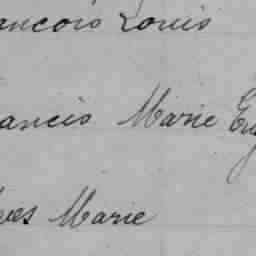 ancois Louis
ancis Marie Eug
ves Marie